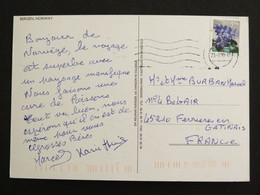 BERGEN, NORWAY
Bonjour de
Norvège, le voyage
est superbe avec
un paysage magnifique
Nous faisons une
cure de Poissons
Tout va bien, nous
espérons qu'il en est de
même pour vous
Grosses Bises
Marcel
Mr et Mme BURBAN Marcel
N°4 BELAIR
45210 Ferrières en
GATINAIS
FRANCE